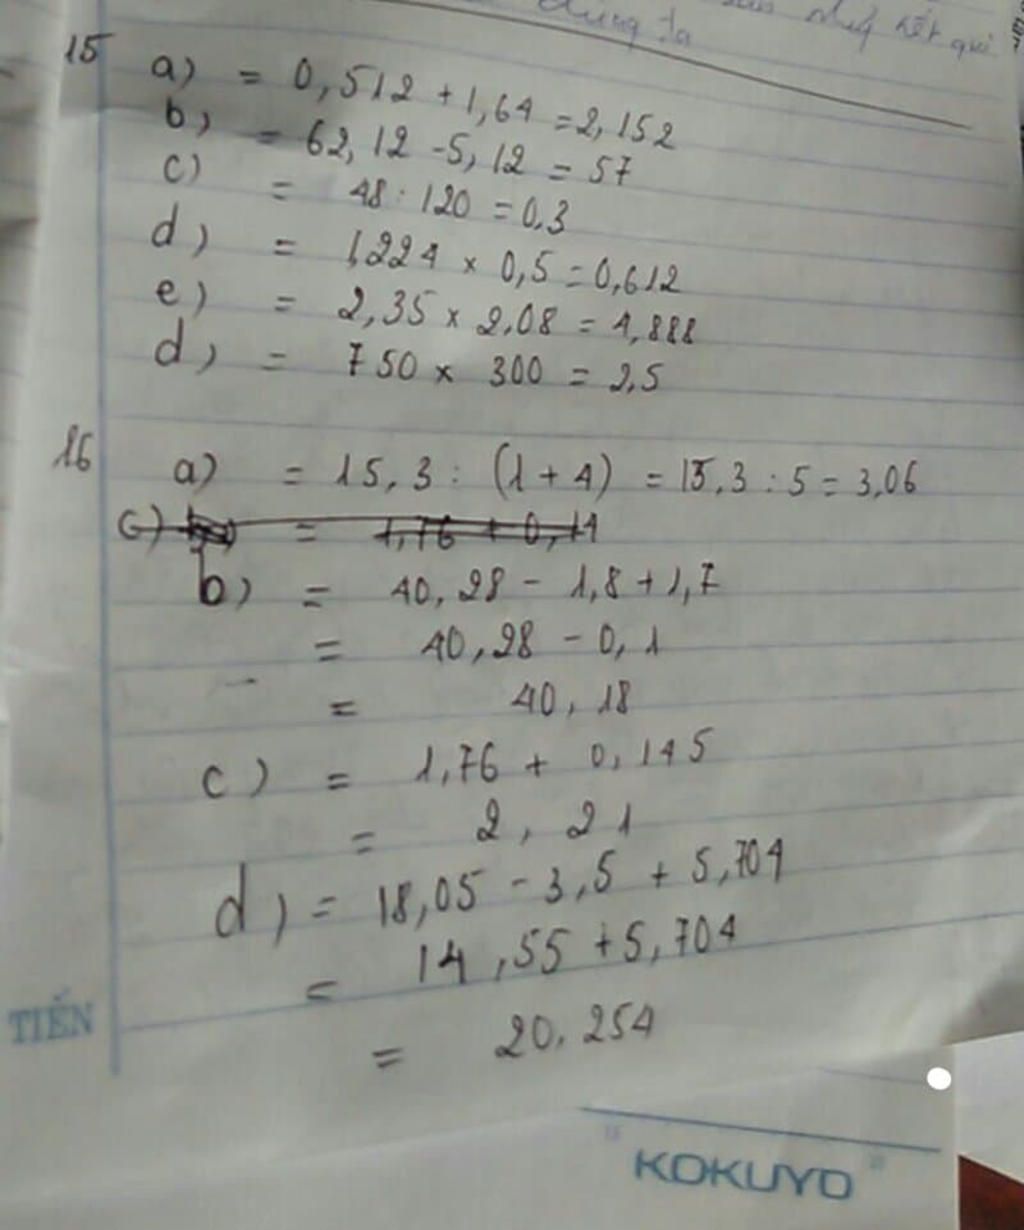 dùng ta
kết quả
15 a) = 0,512 + 1,64 = 2,152
b) = 62,12 - 5,12 = 57
c) = 48 : 120 = 0,3
d) = 1,224 x 0,5 = 0,612
e) = 2,35 x 2,08 = 4,888
d) = 750 x 300 = 2,5
16 a) = 15,3 : (1 + 4) = 15,3 : 5 = 3,06
c) = 1,76 + 0,14
b) = 40,28 - 1,8 + 1,7
= 40,28 - 0,1
= 40,18
c) = 1,76 + 0,145
= 2,21
d) = 18,05 - 3,5 + 5,704
= 14,55 + 5,704
= 20,254
TIẾN
KOKUYO